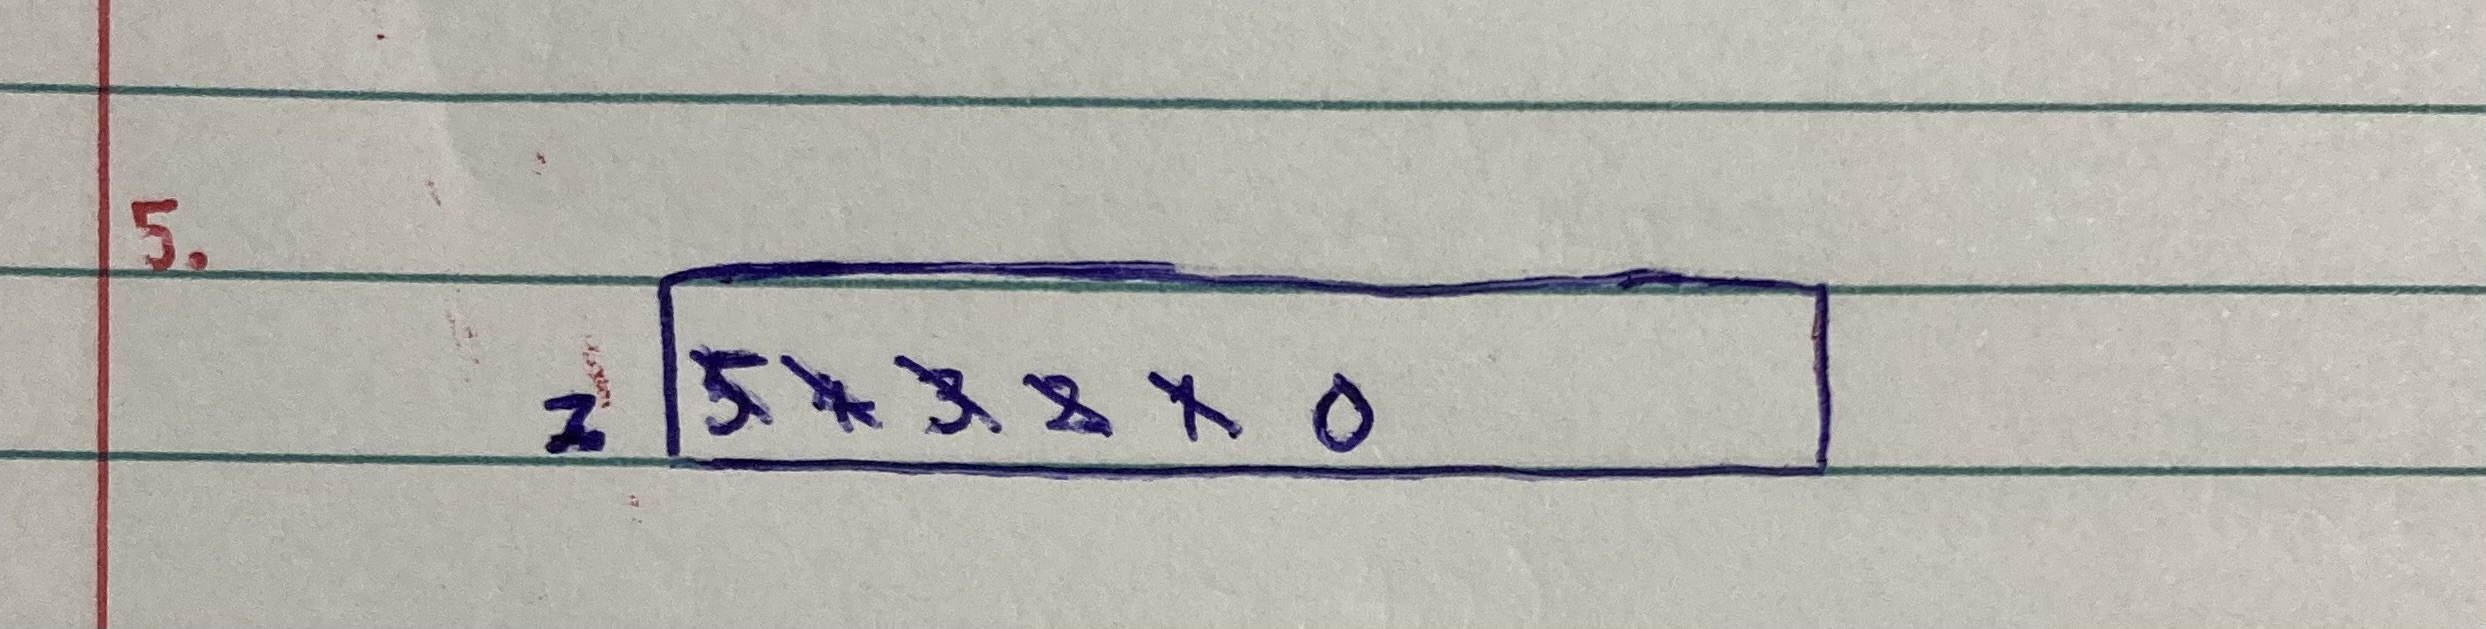 5.
z 5 4 3 2 1 0